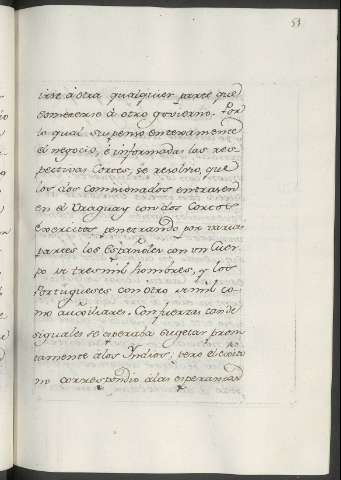 53
irse à otra qualquier parte que
someterse à otro govierno. Por
lo qual suspenso enteramente
el negocio, è informadas las res-
pectivas Cortes, se resolviò, que
los dos comisionados entrasen
en el Uraguay con dos Cortos
exercitos, penetrando por varias
partes los Españoles con un Cuer-
po de tres mil hombres, y los
Portugueses con otro de mil co-
mo auxiliares. Con fuerzas tan de-
siguales se esperaba sugetar prom-
tamente à los Yndios; pero el exito
no correspondio à las esperanzas